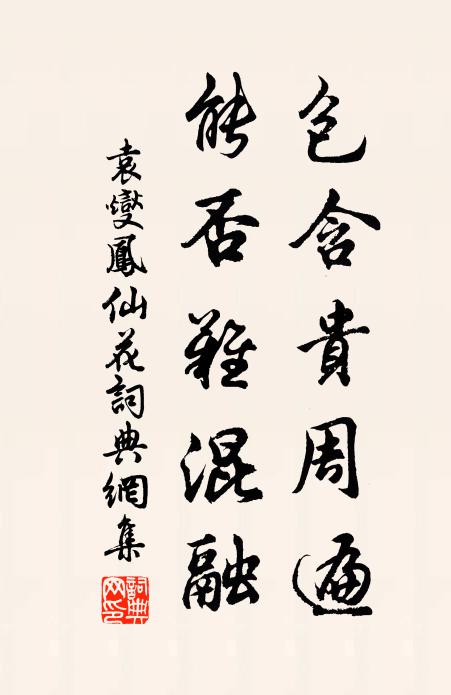 包含貴周遍
能否難混融
袁燮鳳仙花詞典網集
詞典網印